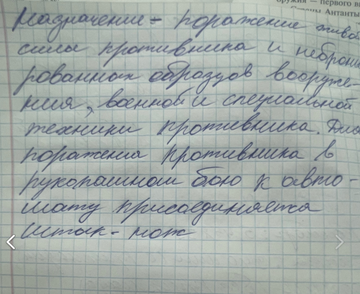 оружия – первого в
Антанты
Назначение - поражение живой
силы противника и неброни
рованных образцов вооруже-
ния, военной и специальной
техники противника. Для
поражения противника в
рукопашном бою к авто-
мату присоединяется
штык-нож